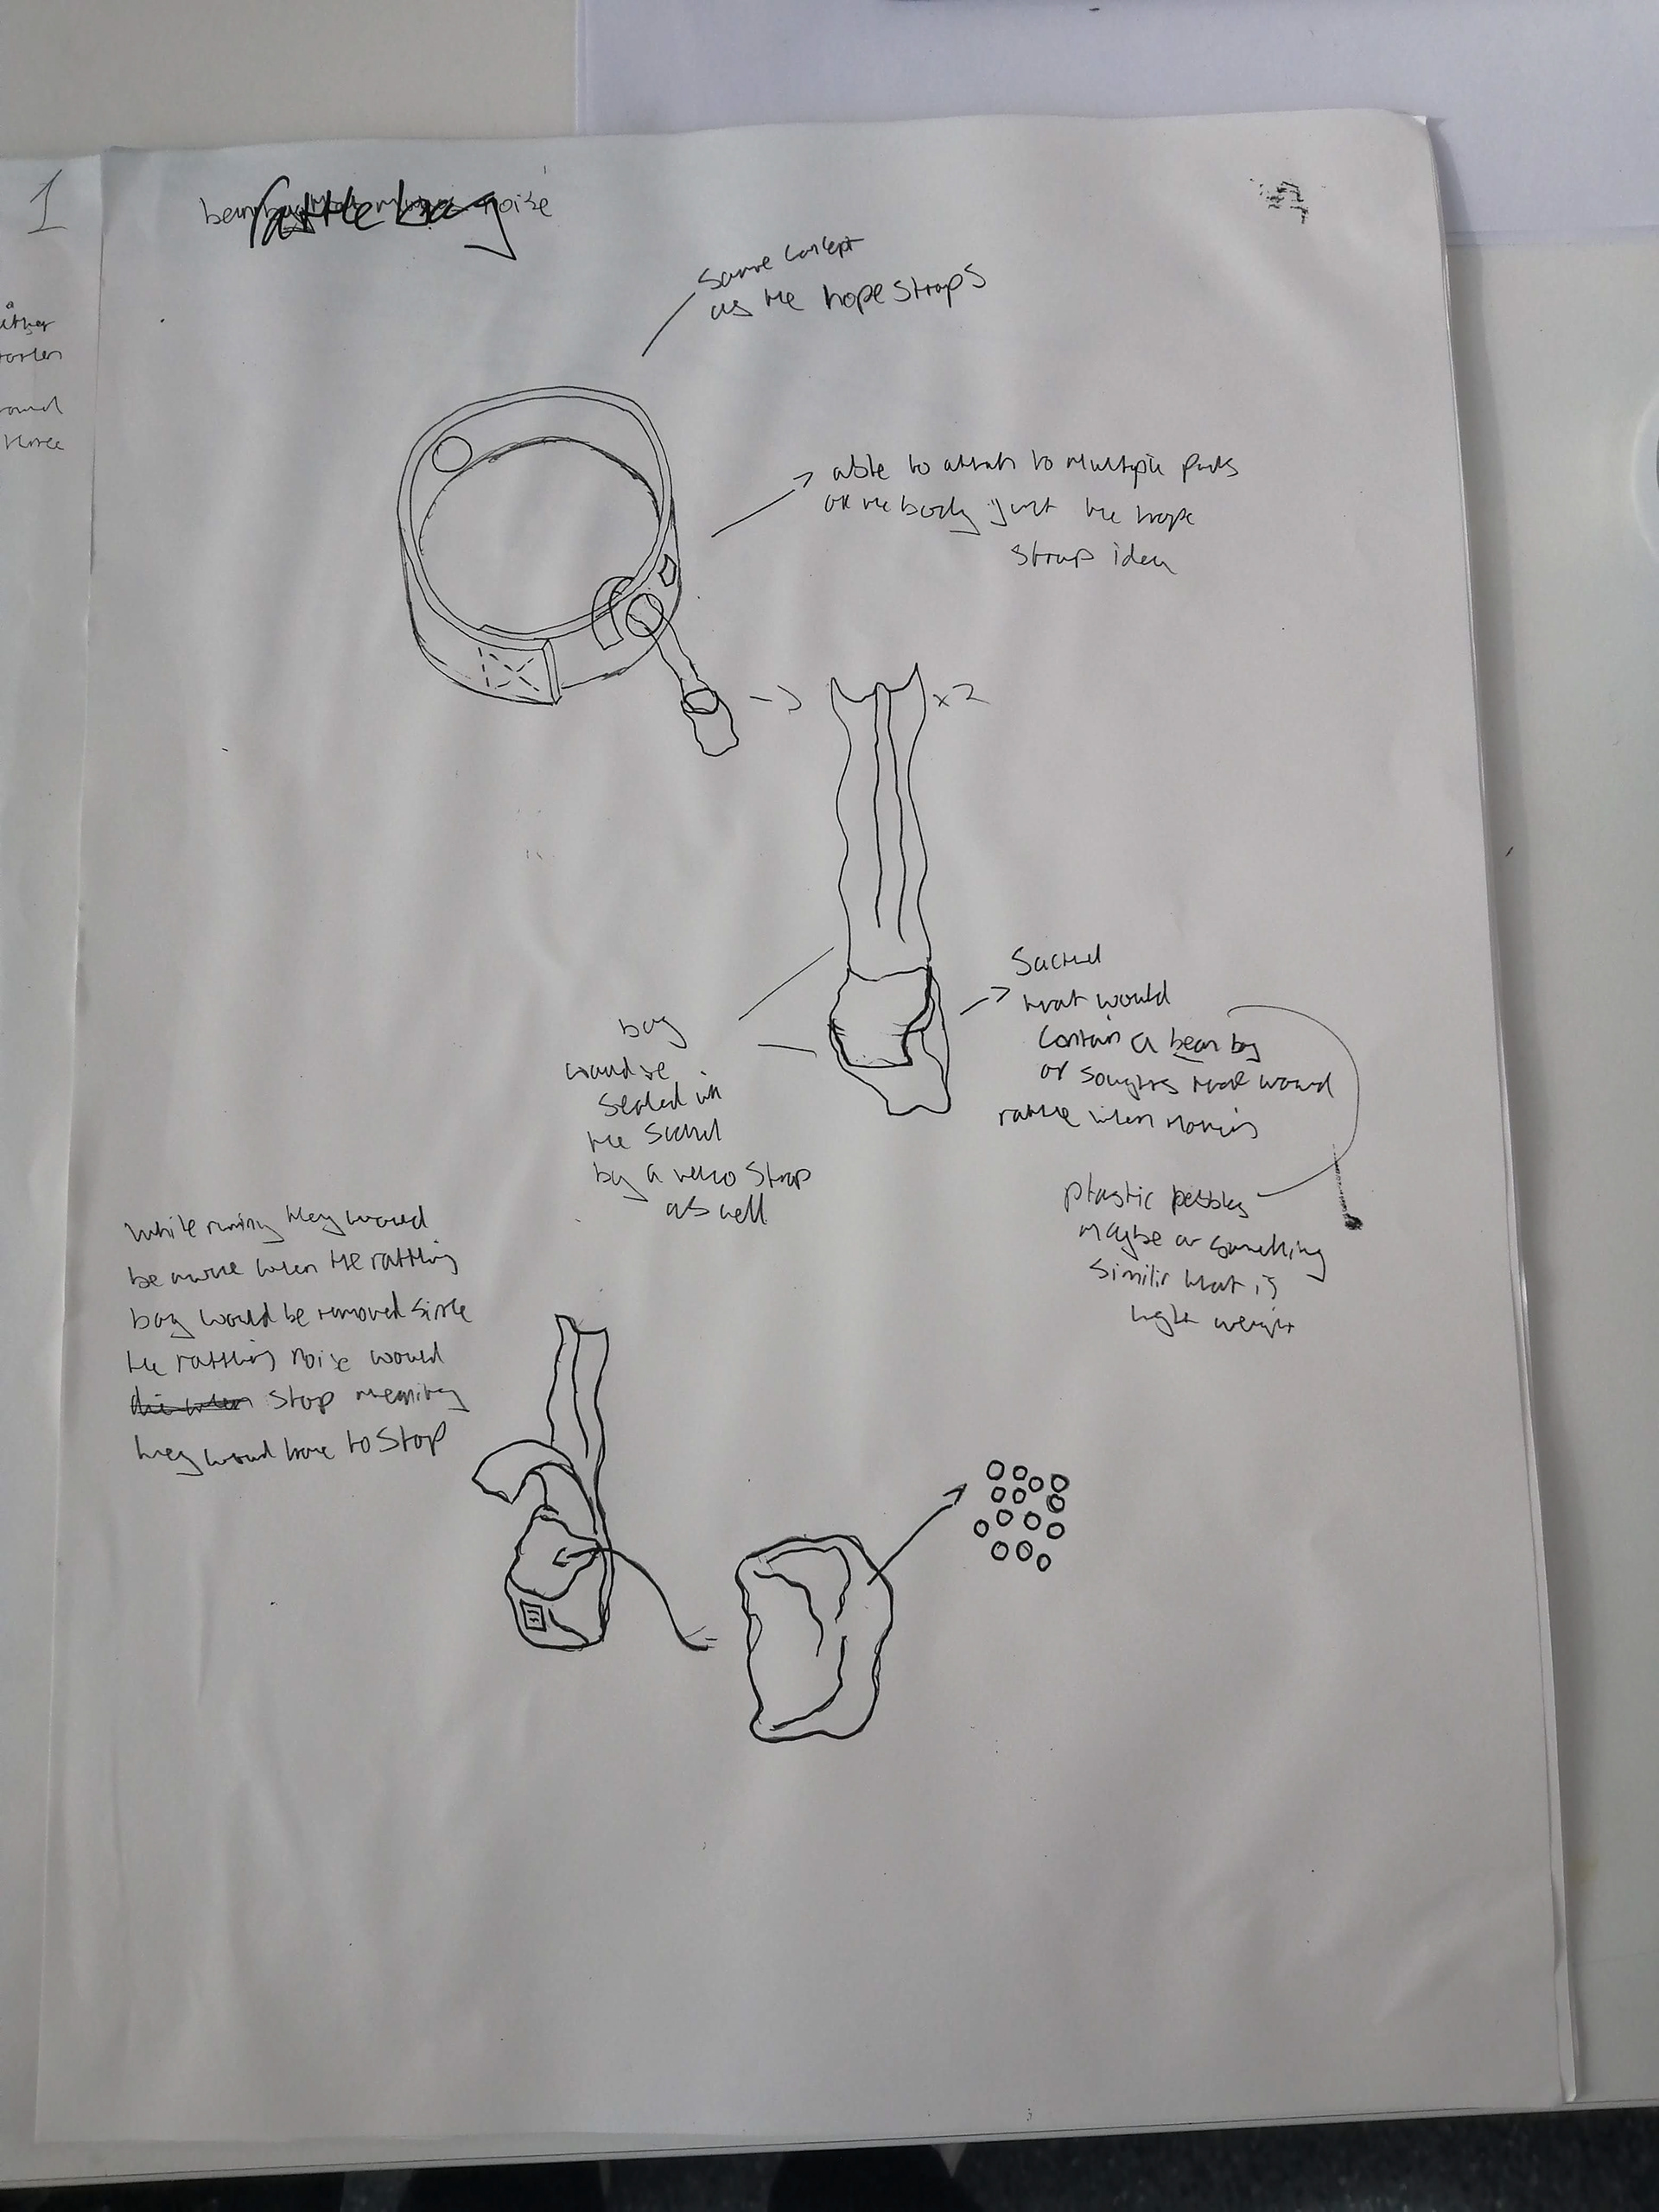 1
rattle bag
noise
same concept
as the hope straps
able to attach to multiple parts
on the body just the hope
strap idea
x2
that would
contain a bean bag
or that would
rattle when moving
bag
would be
sealed in
the
by a velcro strap
as well
plastic pebbles
maybe or something
similir that is
light weight
while runing they would
be aware when the rattling
bag would be removed since
the rattling noise would
stop meaning
they would have to stop